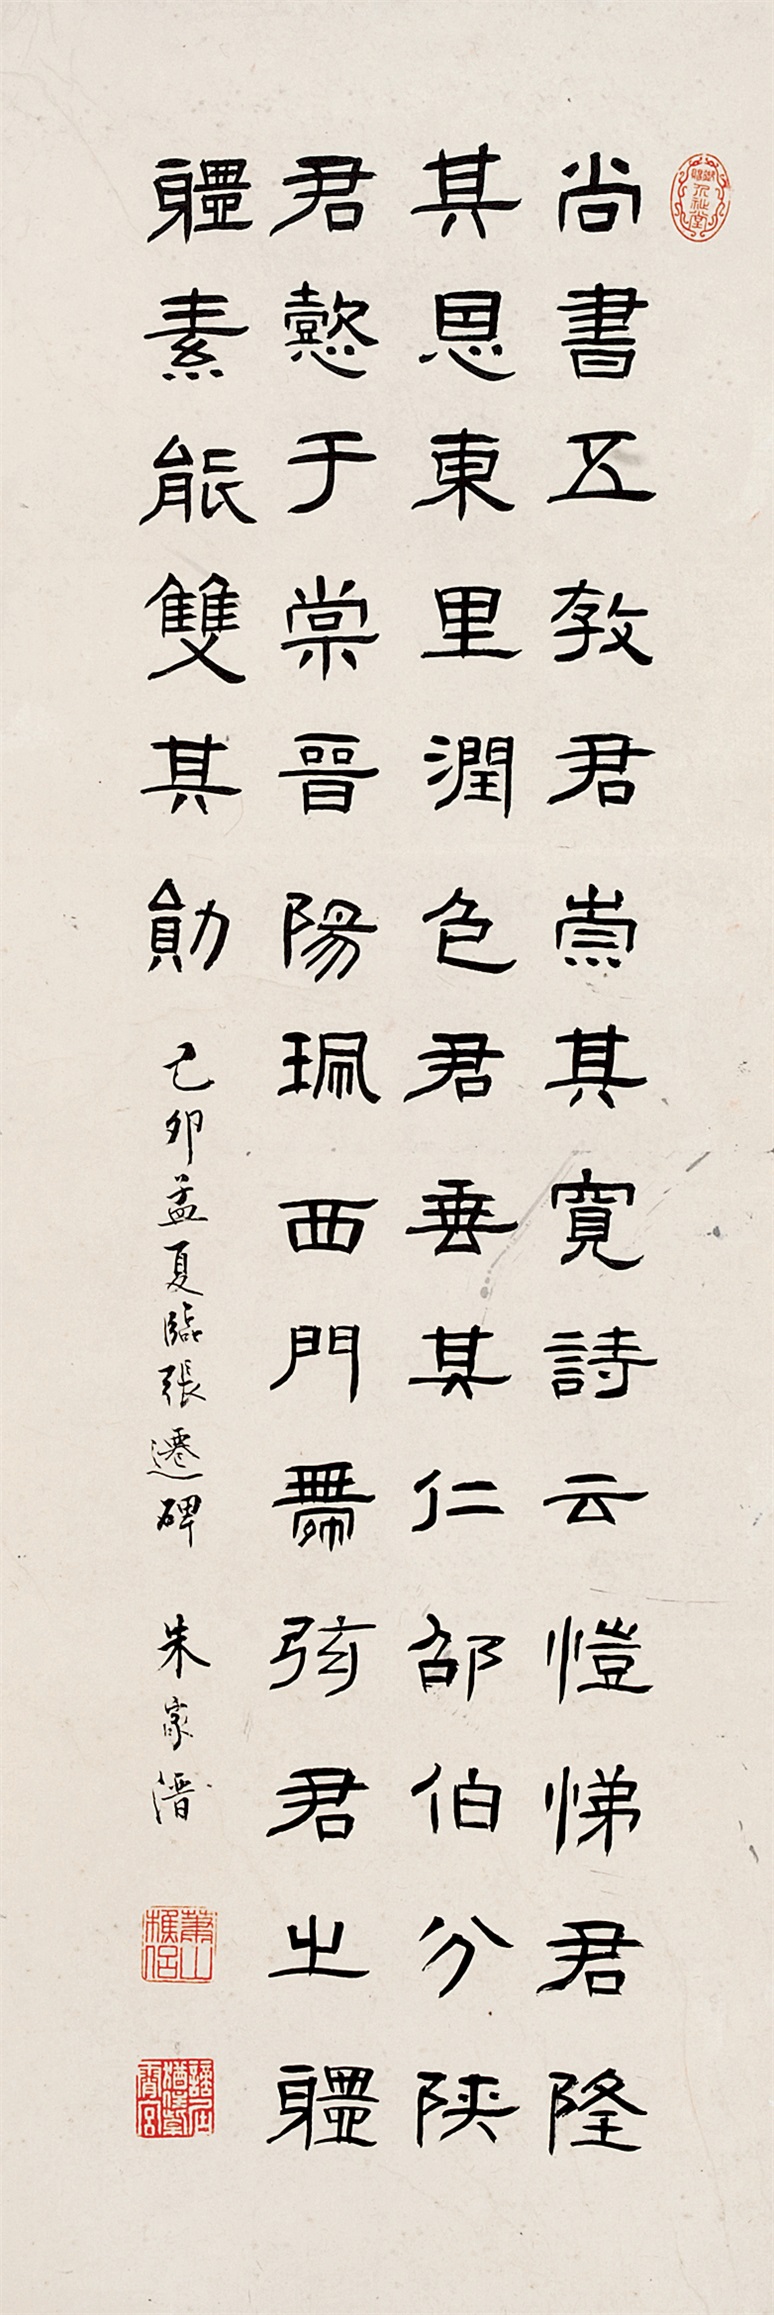 尚書五教君崇其寬詩云愷悌君隆
其恩東里潤色君垂其仁邵伯分陝
君懿于棠晉陽珮西門帶弦君之軆
軆素能雙其勛
己卯孟夏臨張遷碑 朱家溍
蕭山樵侶